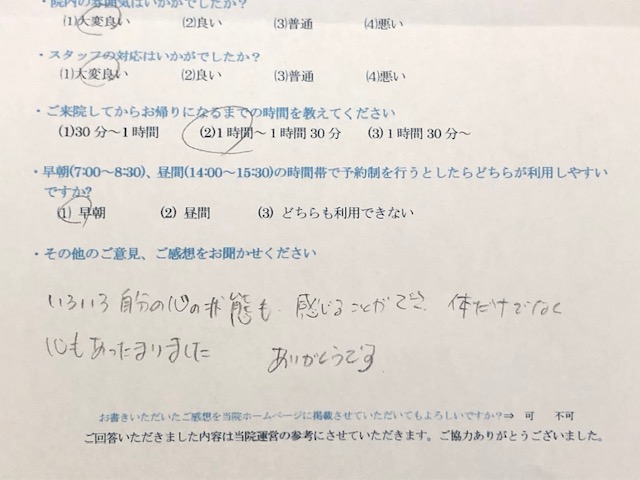 ・院内の雰囲気はいかがでしたか?
(1)大変良い (2)良い (3)普通 (4)悪い
・スタッフの対応はいかがでしたか?
(1)大変良い (2)良い (3)普通 (4)悪い
・ご来院してからお帰りになるまでの時間を教えてください
(1)30分～1時間 (2)1時間～1時間30分 (3)1時間30分～
・早朝(7:00～8:30)、昼間(14:00～15:30)の時間帯で予約制を行うとしたらどちらが利用しやすい
ですか?
(1) 早朝 (2) 昼間 (3) どちらも利用できない
・その他のご意見、ご感想をお聞かせください
いろいろ自分の心の状態も感じることができ 体だけでなく
心もあったまりました ありがとうです
お書きいただいたご感想を当院ホームページに掲載させていただいてもよろしいですか?⇒ 可 不可
ご回答いただきました内容は当院運営の参考にさせていただきます。ご協力ありがとうございました。